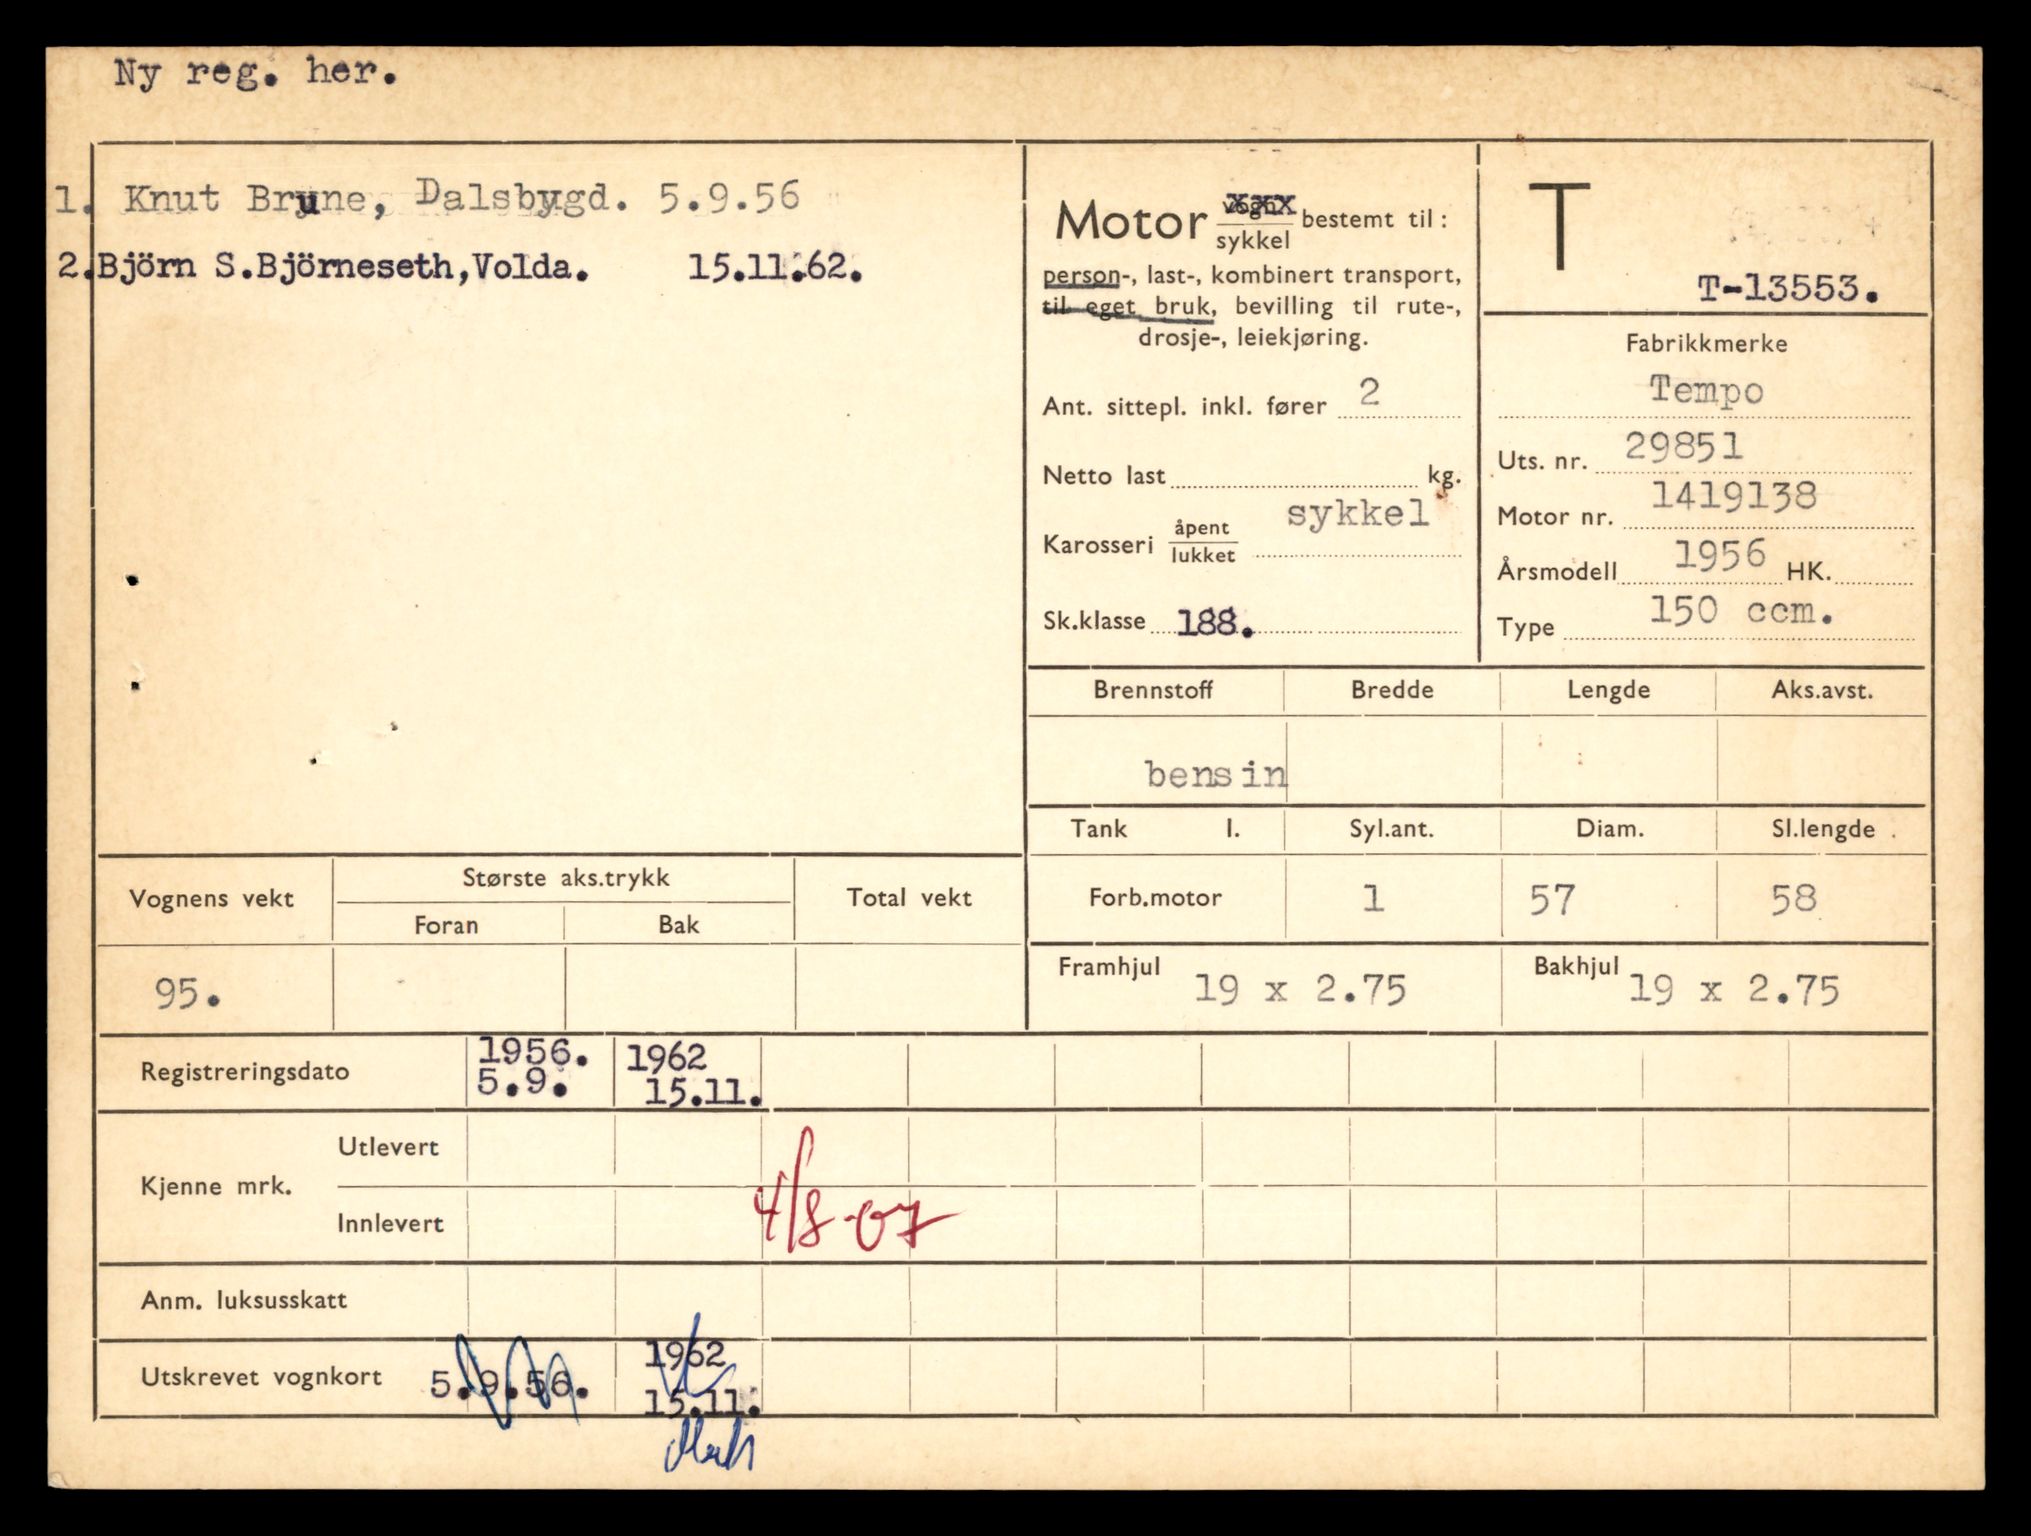 Ny reg. her.
1. Knut Brune, Dalsbygd. 5.9.56
2. Björn S.Björneseth, Volda. 15.11.62.
Motor vogn xxx / sykkel bestemt til:
person-, last-, kombinert transport,
til eget bruk, bevilling til rute-,
drosje-, leiekjøring.
Ant. sittepl. inkl. fører 2
Netto last kg.
Karosseri åpent / lukket sykkel
Sk.klasse 188.
T
T-13553.
Fabrikkmerke
Tempo
Uts. nr. 29851
Motor nr. 1419138
Årsmodell 1956 HK.
Type 150 ccm.
Brennstoff Bredde Lengde Aks.avst.
bensin
Tank l. Syl.ant. Diam. Sl.lengde
Forb.motor 1 57 58
Framhjul 19 x 2.75 Bakhjul 19 x 2.75
Vognens vekt Største aks.trykk Total vekt
Foran Bak
95.
Registreringsdato 1956. 5.9. 1962 15.11.
Kjenne mrk. Utlevert
Innlevert 4/8-07
Anm. luksusskatt
Utskrevet vognkort 5.9.56. 1962 15.11.